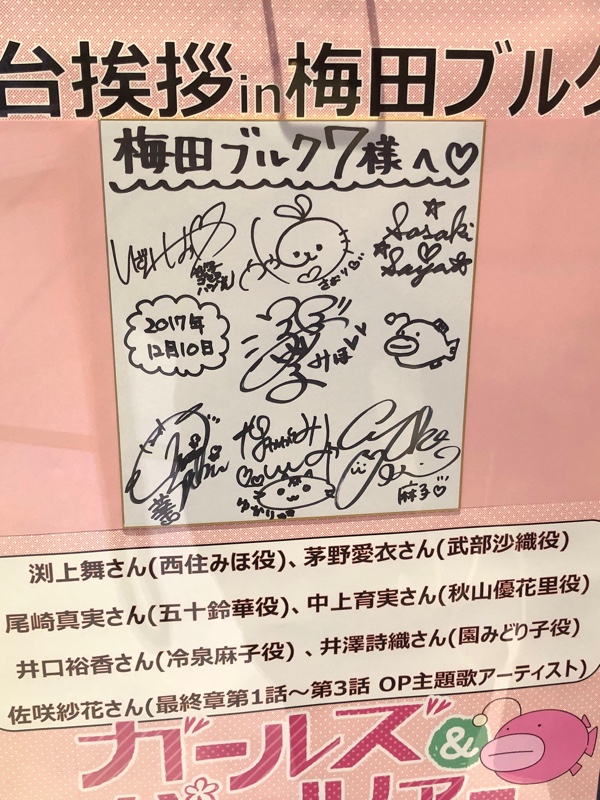 台挨拶in梅田ブルク
梅田ブルク7様へ♡
さおり♡
Sasaki
Saya
2017年
12月10日
みほ♡
華
ゆかり
麻子♡
渕上舞さん(西住みほ役)、茅野愛衣さん(武部沙織役)
尾崎真実さん(五十鈴華役)、中上育実さん(秋山優花里役)
井口裕香さん(冷泉麻子役) 、井澤詩織さん(園みどり子役)
佐咲紗花さん(最終章第1話～第3話 OP主題歌アーティスト)
ガールズ&
パンツァー